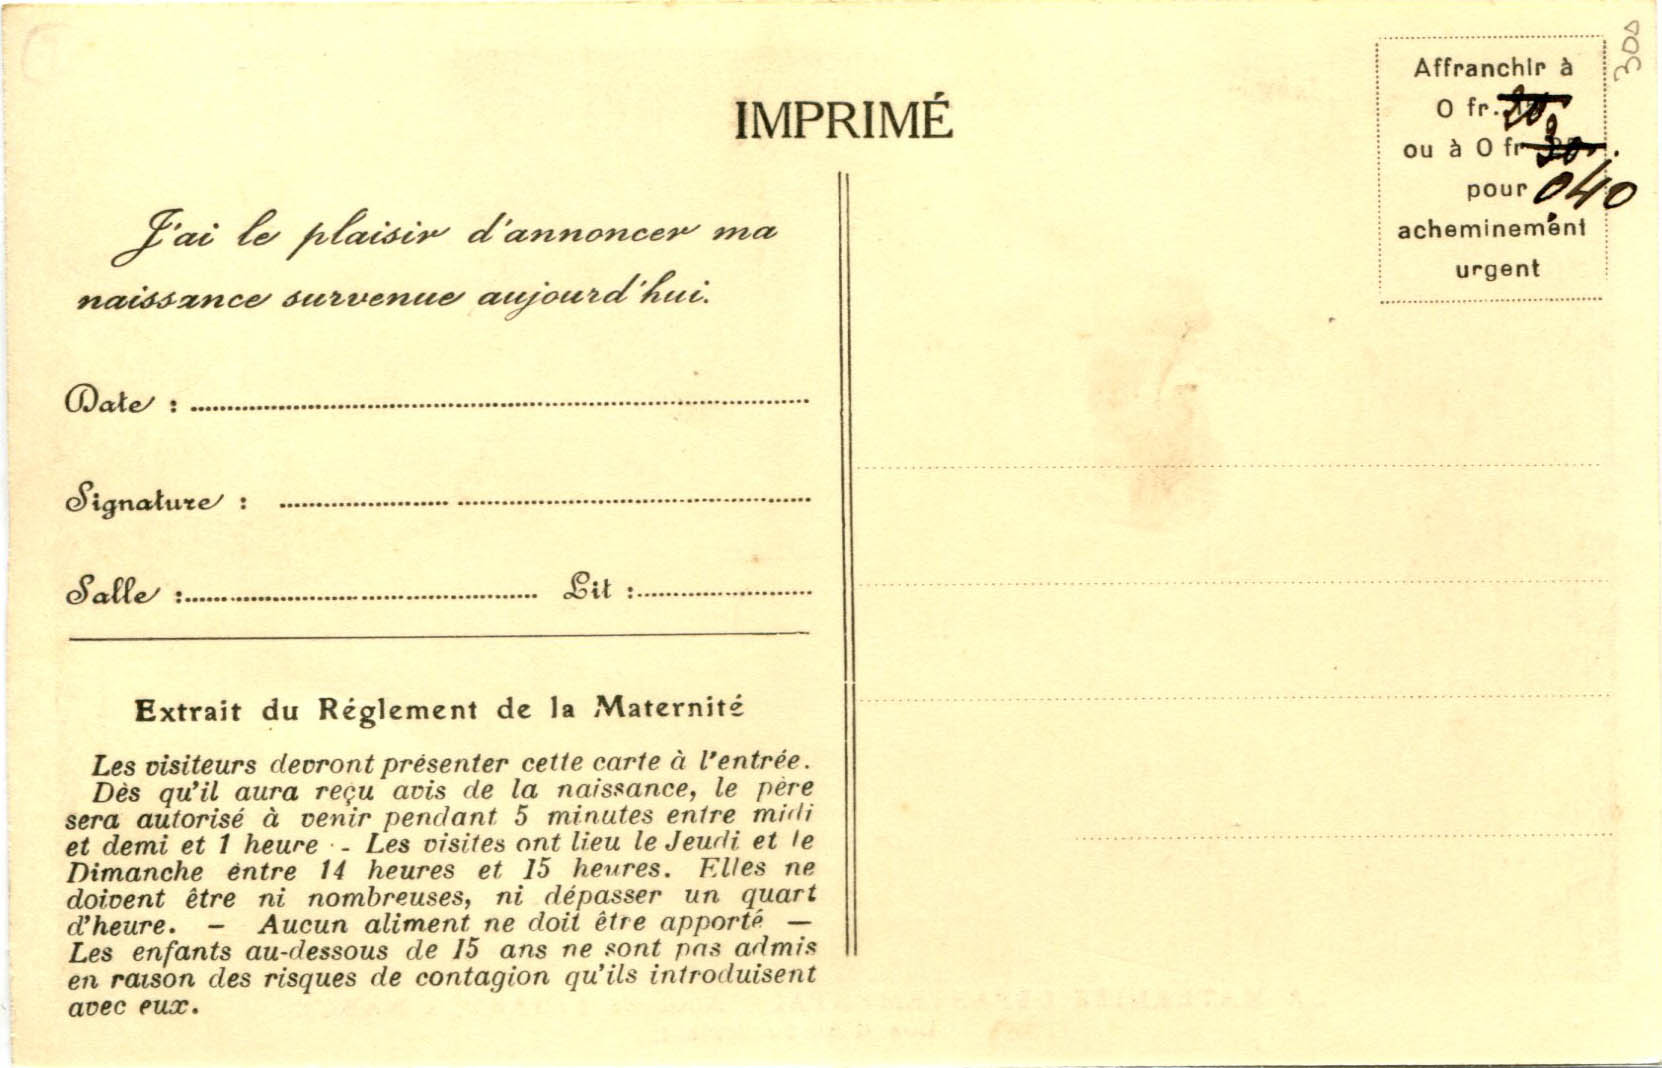 300
Affranchir à
0 fr. 20
ou à 0 fr 30
pour 040
acheminement
urgent
IMPRIMÉ
J'ai le plaisir d'annoncer ma
naissance survenue aujourd'hui.
Date :
Signature :
Salle : Lit :
Extrait du Réglement de la Maternité
Les visiteurs devront présenter cette carte à l'entrée.
Dès qu'il aura reçu avis de la naissance, le père
sera autorisé à venir pendant 5 minutes entre midi
et demi et 1 heure - Les visites ont lieu le Jeudi et le
Dimanche entre 14 heures et 15 heures. Elles ne
doivent être ni nombreuses, ni dépasser un quart
d'heure. — Aucun aliment ne doit être apporté —
Les enfants au-dessous de 15 ans ne sont pas admis
en raison des risques de contagion qu'ils introduisent
avec eux.